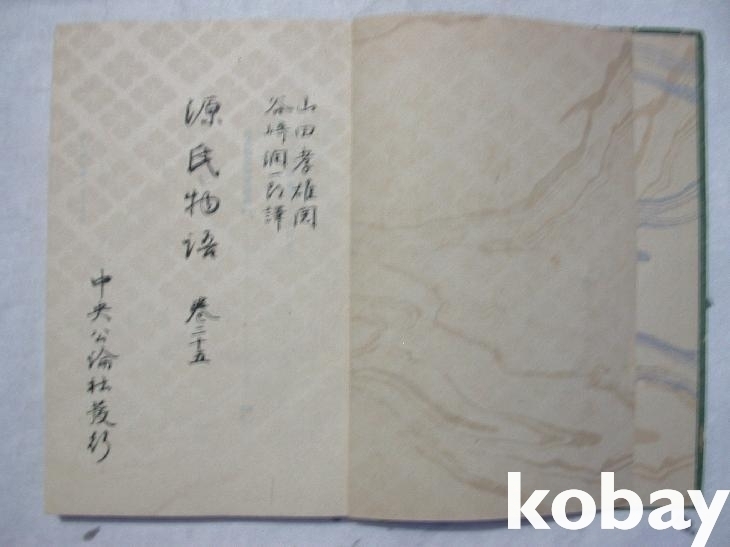 山田孝雄閲
谷崎潤一郎譯
源氏物語 卷二十五
中央公論社發行
kobay